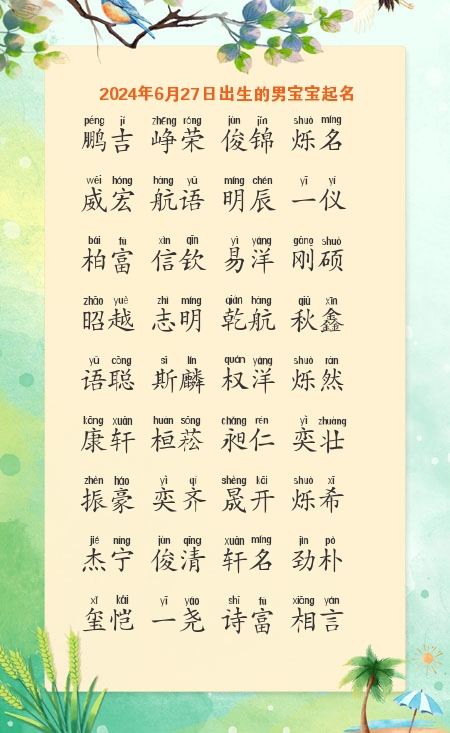 2024年6月27日出生的男宝宝起名
péng jí zhēng róng jùn jǐn shuò míng
鹏吉 峥荣 俊锦 烁名
wēi hóng háng yǔ míng chén yī yí
威宏 航语 明辰 一仪
bǎi fù xìn qīn yì yáng gāng shuò
柏富 信钦 易洋 刚硕
zhāo yuè zhì míng qián háng qiū xīn
昭越 志明 乾航 秋鑫
yǔ cōng sī lín quán yáng shuò rán
语聪 斯麟 权洋 烁然
kāng xuān huán sōng chǎng rén yì zhuàng
康轩 桓菘 昶仁 奕壮
zhèn háo yì qí shèng kāi shuò xī
振豪 奕齐 晟开 烁希
jié níng jùn qīng xuān míng jìn pǔ
杰宁 俊清 轩名 劲朴
xǐ kǎi yī yáo shī fù xiāng yán
玺恺 一尧 诗富 相言